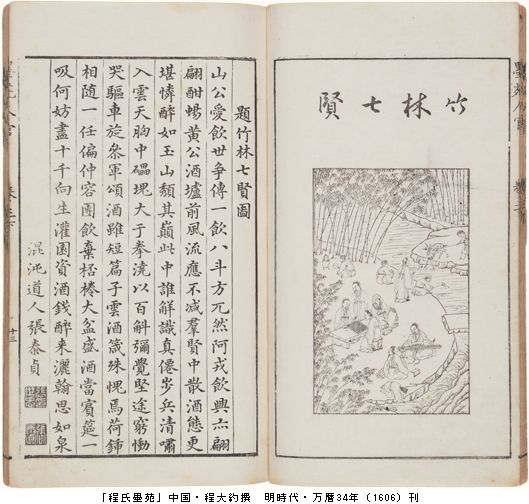 竹林七賢
題竹林七賢圖
山公愛飲世争傳一飲八斗方兀然阿戎飲興亦翩
翩酣暢黄公酒壚前風流應不减羣賢中散酒態更
堪憐醉如玉山頹其巔此中誰解識真僊步兵清嘯
入雲天胸中礧塊大于拳澆以百斛彌覺堅途窮慟
哭驅車旋叅軍頌酒雖短篇子雲酒箴殊愧焉荷鍤
相隨一任偏仲容團飲棄桮棬大盆盛酒當賓筵一
吸何妨盡十千向生灌園資酒錢醉来灑翰思如泉
混沌道人張泰貞
十三
「程氏墨苑」中国・程大約撰　明時代・万暦34年（1606）刊